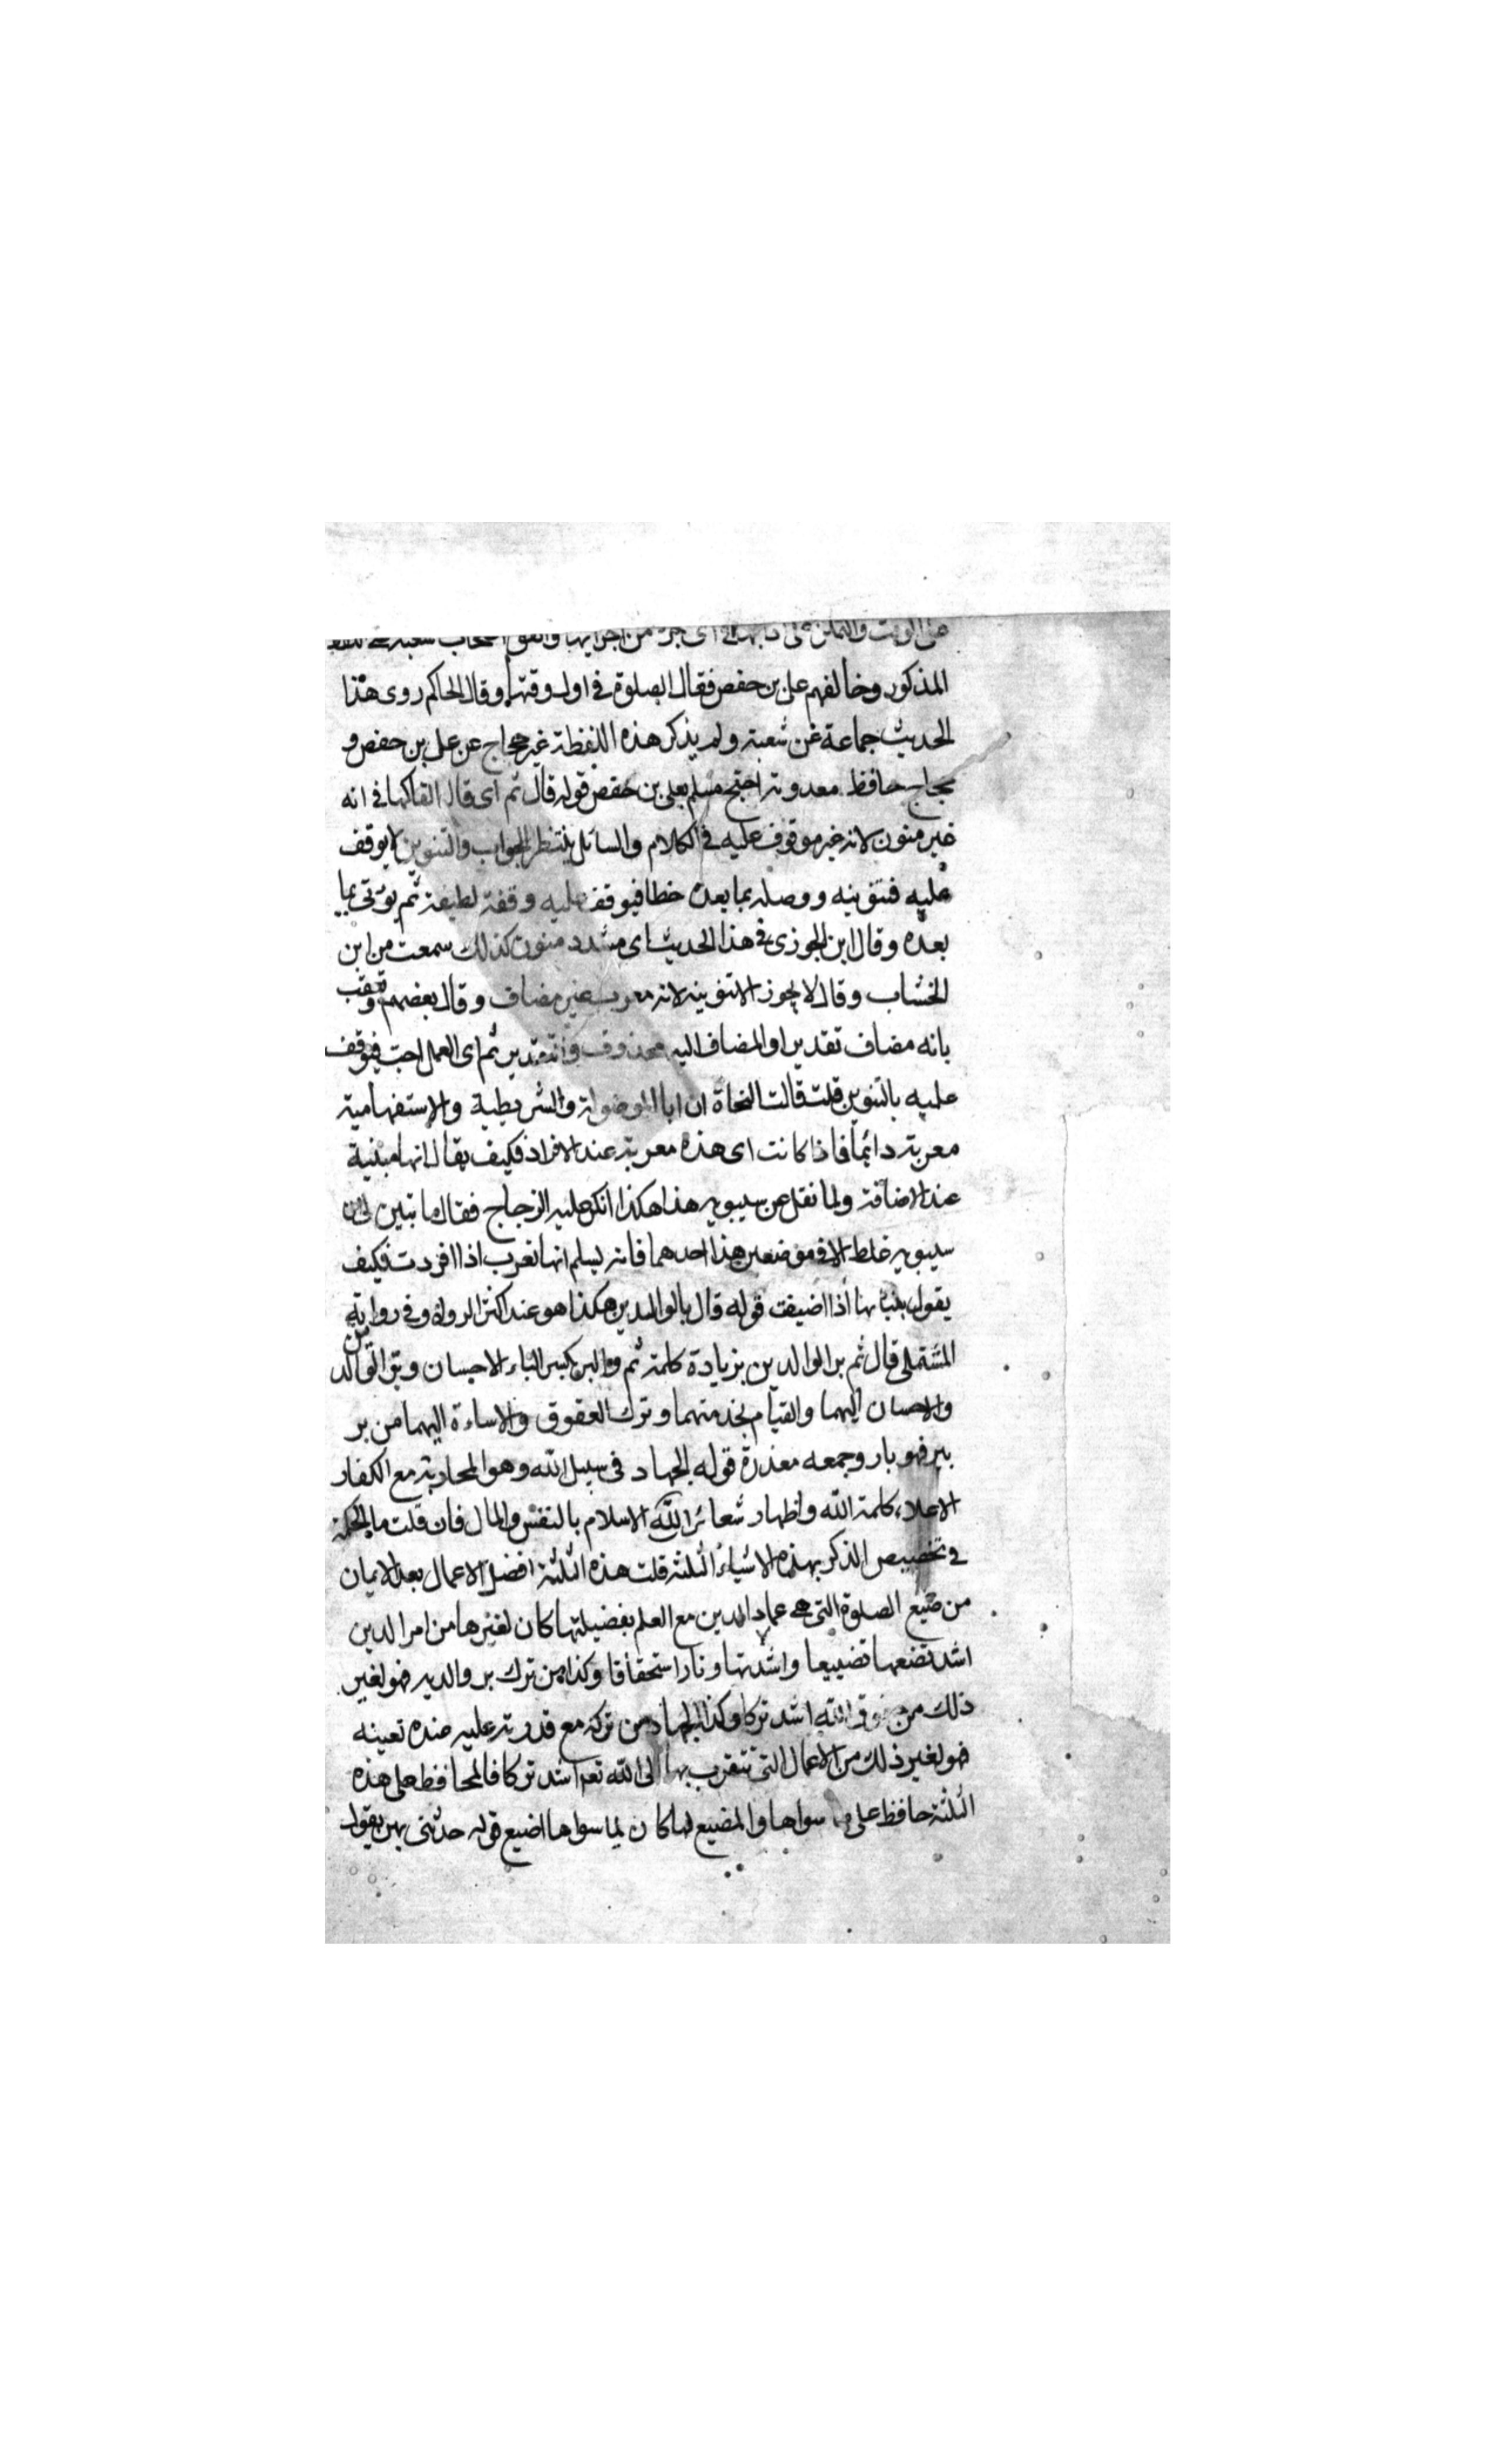 على الوقت والتمكن على ادائها في اي جزء من اجزائها واتفق اصحاب شعبة على اللفظ
المذكور وخالفهم على بن حفص فقال الصلوة في اول وقتها وقال الحاكم روى هذا
الحديث جماعة عن شعبة ولم يذكر هذه اللفظة غير حجاج عن على بن حفص و
حجاج حافظ احتج مسلم بعلى بن حفص قوله قال ثم اى قال الفاكهاني انه
غير منون لانه غير موقوف عليه في الكلام والسائل ينتظر الجواب والتنوين لا يوقف
عليه فتنوينه ووصله بما بعده خطا فيوقف عليه وقفة لطيفة ثم يؤتى بما
بعده وقال ابن الجوزى في هذا الحديث اى مشدد منون كذلك سمعت من ابن
الخشاب وقال لا يجوز الا تنوينه لانه معرب غير مضاف وقال بعضهم وتعقب
بانه مضاف تقديرا والمضاف اليه محذوف والتقدير ثم اى العمل احب فيوقف
عليه بالتنوين قلت قالت النحاة ان ايا الموصولة والشرطية والاستفهامية
معربة دائما فاذا كانت اى هذه معربة عند الافراد فكيف يقال انها مبنية
عند الاضافة ولما نقل عن سيبويه هذا هكذا انكر عليه الزجاج فقال ما تبين لى ان
سيبويه غلط الا في موضعين هذا احدهما فانه يسلم انها تعرب اذا افردت فكيف
يقول ببنائها اذا اضيفت قوله قال بر الوالدين هكذا هو عند اكثر الرواة وفي رواية
المستملى قال ثم بر الوالدين بزيادة كلمة ثم والبر بكسر الباء الاحسان وبر الوالدين
والاحسان اليهما والقيام بخدمتهما وترك العقوق والاساءة اليهما من بر
يبر فهو بار وجمعه قوله الجهاد فى سبيل الله وهو المحاربة مع الكفار
لاعلاء كلمة الله واظهار شعائر الله الاسلام بالنفس والمال فان قلت ما الحكمة
في تخصيص الذكر بهذه الاشياء الثلثة قلت هذه الثلثة افضل الاعمال بعد الايمان
من ضيع الصلوة التى هى عماد الدين مع العلم بفضيلتها كان لغيرها من امر الدين
اشد تضييعا واشد تهاونا واستحقاقا وكذا من ترك بر والديه فهو لغير
ذلك من حقوق الله اشد تركا وكذا الجهاد من تركه مع قدرته عليه عنده تعينه
فهو لغير ذلك من الاعمال التى تتقرب بها الى الله تعه اشد تركا فالمحافظ على هذه
الثلثة حافظ على ما سواها والمضيع لها كان لما سواها اضيع قوله حدثنى بهن يقول